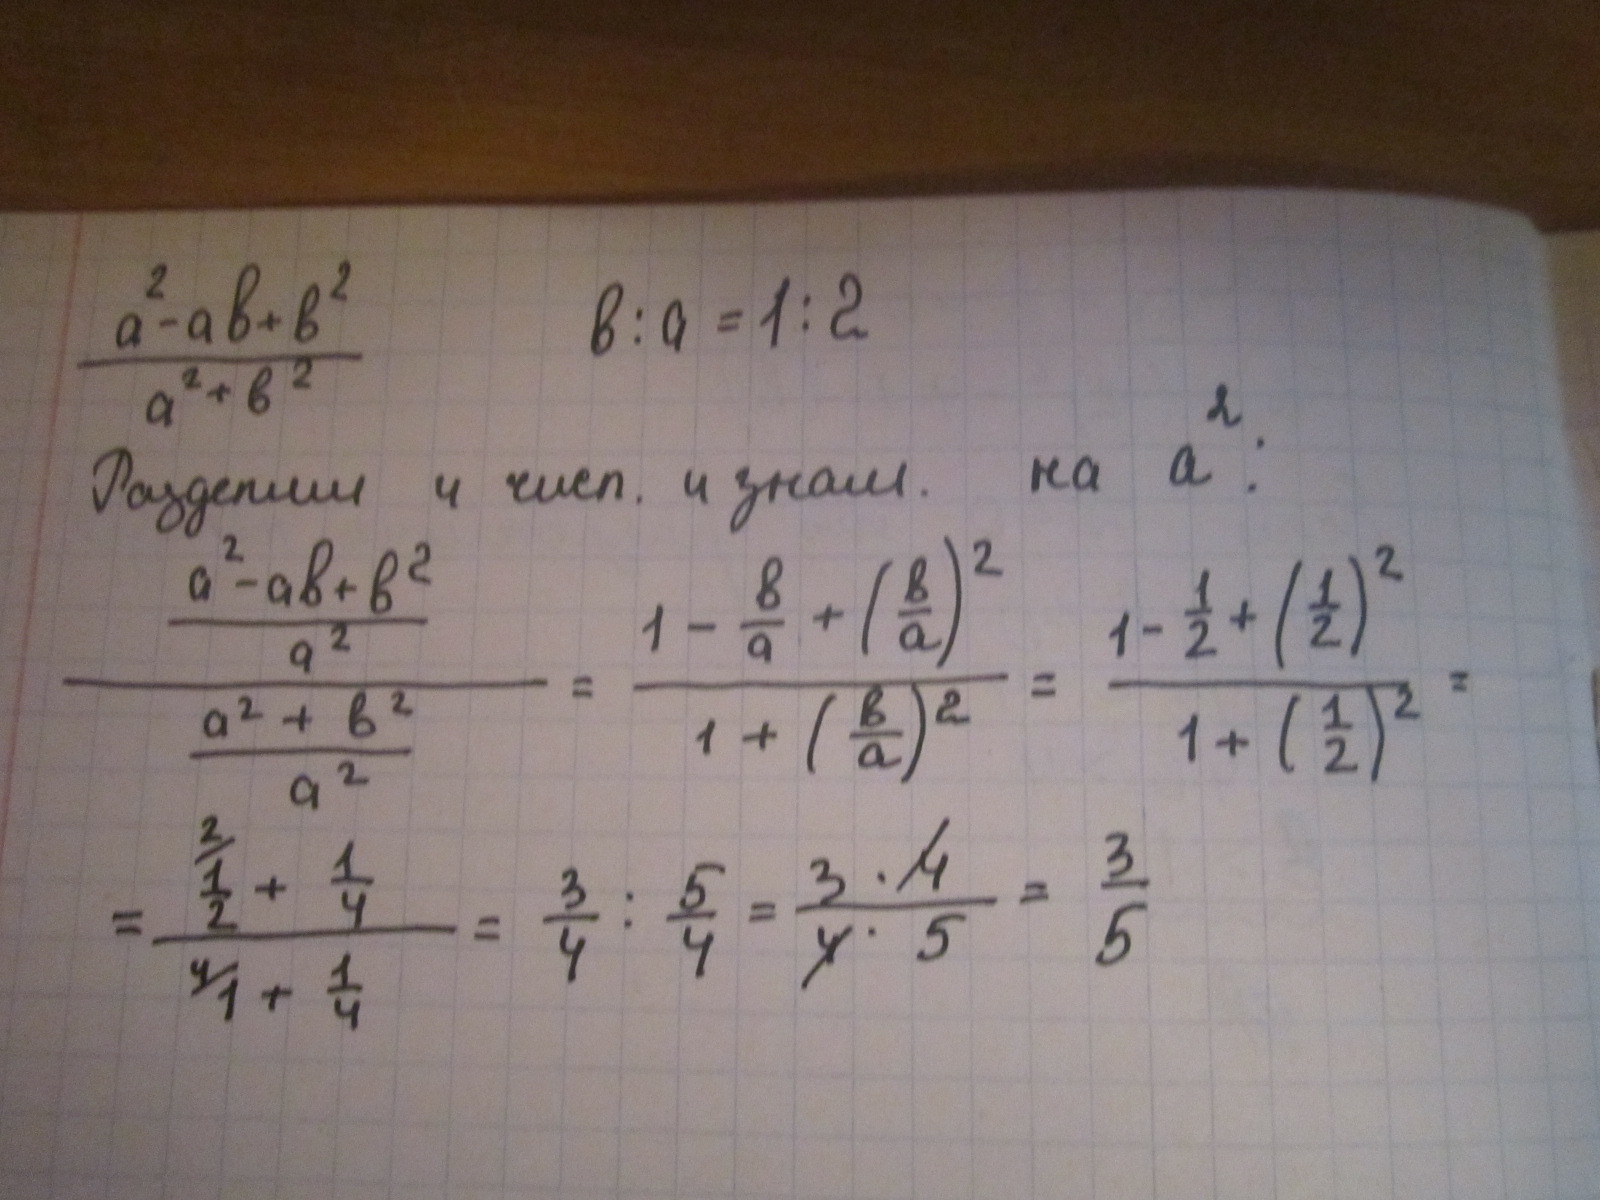 (a² - ab + b²)/(a² + b²) b : a = 1 : 2
Разделим и числ. и знам. на a²:
((a² - ab + b²)/a²)/((a² + b²)/a²) = (1 - b/a + (b/a)²)/(1 + (b/a)²) = (1 - 1/2 + (1/2)²)/(1 + (1/2)²) =
= (²⁄ 1/2 + 1/4)/(⁴⁄ 1 + 1/4) = 3/4 : 5/4 = (3 · 4)/(4 · 5) = 3/5